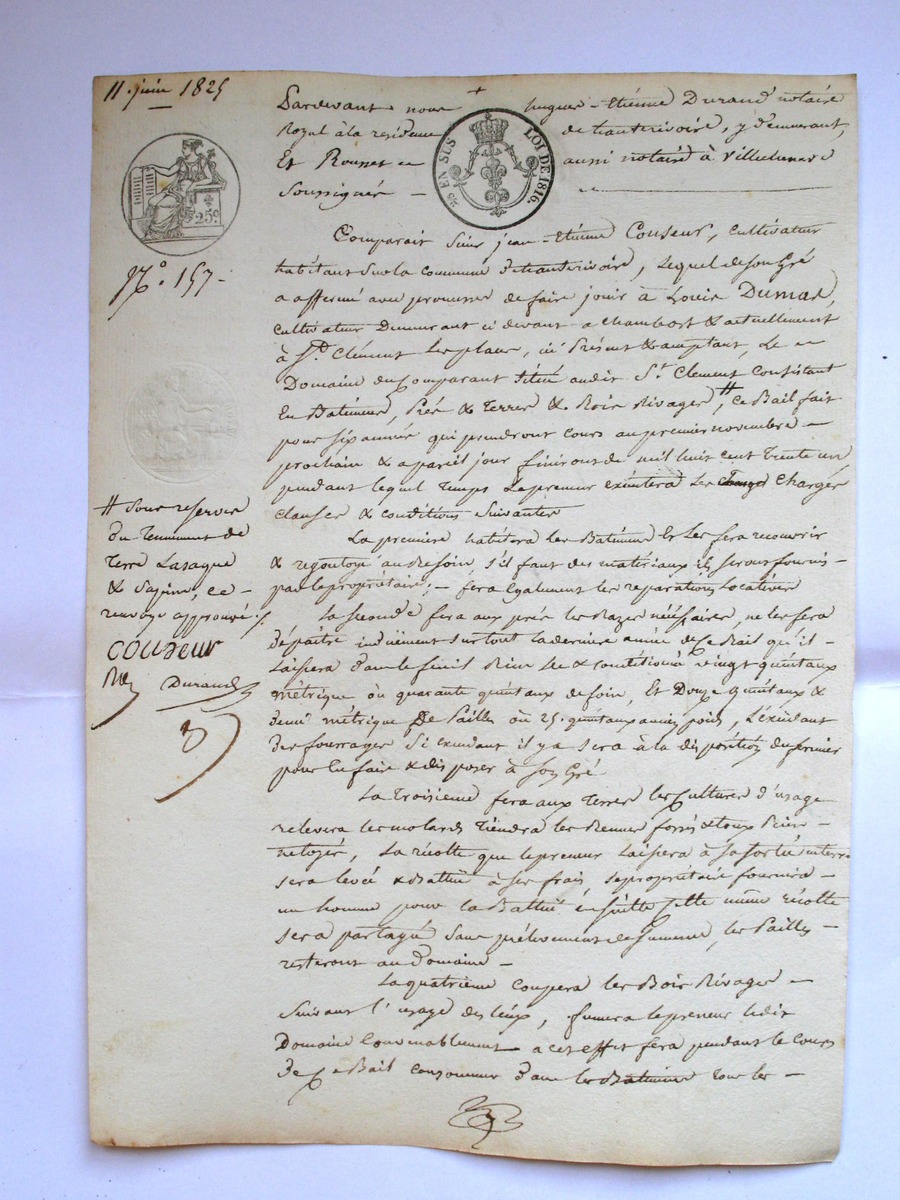 11. juin 1825
Pardevant nous hugues-Etienne Durand notaire
Royal à la residence de hauterivoire, y demeurant,
Et Rousset aussi notaire à Villechenève
Soussignés
EN SUS
LOI DE 1816.
25c
N.o 157.
Comparait Sieur jean-Etienne Couseur, cultivateur
habitant sur la commune d'hauterivoire, Lequel de son Gré
a affermé avec promesse de faire jouir à Louis Dumas,
cultivateur Demeurant ci devant a chambost & actuellement
à St. Clément les places, ici Présent & acceptant, Le
Domaine du Comparant situé audit St. Clement Consistant
En Batiments, Prés & Terres & Bois Rivages #, ce Bail fait
pour six années qui prendront cours au premier novembre
prochain & a pareil jour finiront de mil huit cent trente un
pendant lequel Temps Le preneur exécutera Les Charges
clauses & conditions Suivantes
# Sous reserve
du Tennement de
Terre Lasagne
& Sapins, ce
renvoye approuvé ./.
couseur
Durand
La premiere habitera Les Batiments Et Les fera recouvrir
& regoutoyé au Besoin, s'il faut des matériaux ils seront fournis
par le proprietaire; fera également les reparations Locatives
La seconde fera aux prés les Razes nécessaires, ne les fera
dépaitre induement surtout La derniere année de Ce Bail qu'il
Laissera dans le fenil Bien sec & conditionné vingt quintaux
métrique ou quarante quintaux de foin, Et Douze quintaux &
demi métrique De Pailles ou 25. quintaux ancien poids, L'excédant
des fourrages Si excedant il y a sera à la disposition du fermier
pour En faire & disposer à son Gré
La Troisieme fera aux Terres les Cultures d'usage
relevera les molards Tiendra les fossés & toux Bien
netoyés, La récolte que le preneur Laissera à sa sortie en terre
sera levée & Battue à ses frais, le propriétaire fournira
un homme pour la Battue Ensuitte cette même récolte
sera partagée Sans prélevement de semence, les Pailles
resteront au Domaine
La quatrieme coupera les Bois Rivages
Suivant l'usage des lieux, fumera le preneur Ledit
Domaine Convenablement a cet effet fera pendant le cours
de Ce Bail consommer dans les Batiments tous les